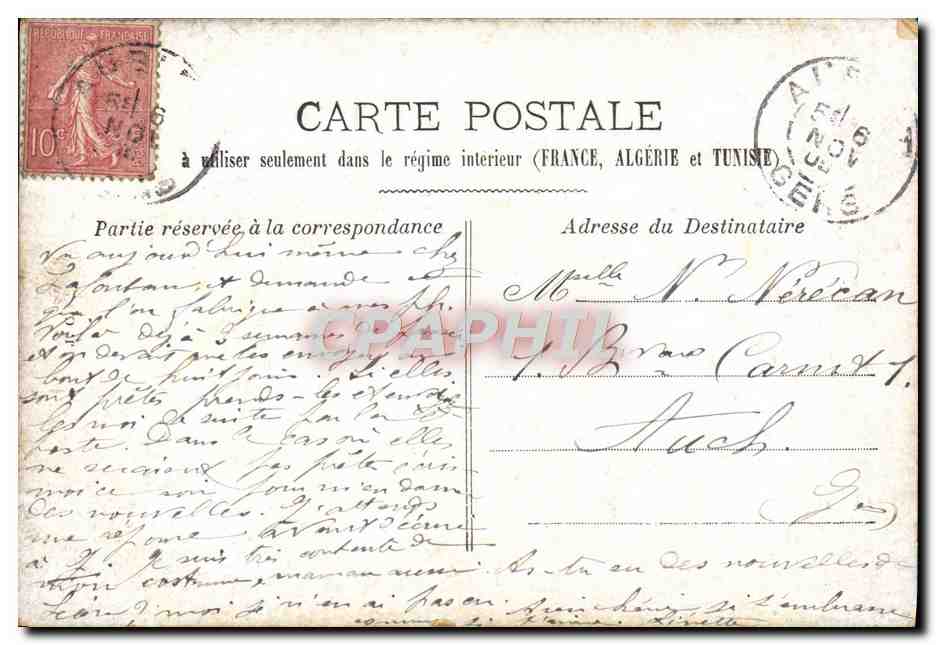 REPUBLIQUE FRANÇAISE
10c
CARTE POSTALE
à utiliser seulement dans le régime interieur (FRANCE, ALGÉRIE et TUNISIE)
AUCH
6
NOV
GERS
Partie réservée à la correspondance
Va aujourd'hui même chez
et demande
que l'on fabrique à mes
Voilà déjà 3 semaines de
et on devait me les envoyer au
bout de huit jours. Si elles
sont prêtes prends-les et envoie
les moi de suite par la
poste. Dans le cas où elles
ne seraient pas prêtes écris
moi ce soir pour m'en donner
des nouvelles. J'attends
une réponse avant d'écrire
à Y. Je suis très contente de
mon costume, maman aussi. As-tu eu des nouvelles de
? moi je n'en ai pas eu. si t'embrasse
comme si t'aime.
CPAPHIL
Adresse du Destinataire
Melle N. Nérécan
1. Carnot 1.
Auch.
Gers